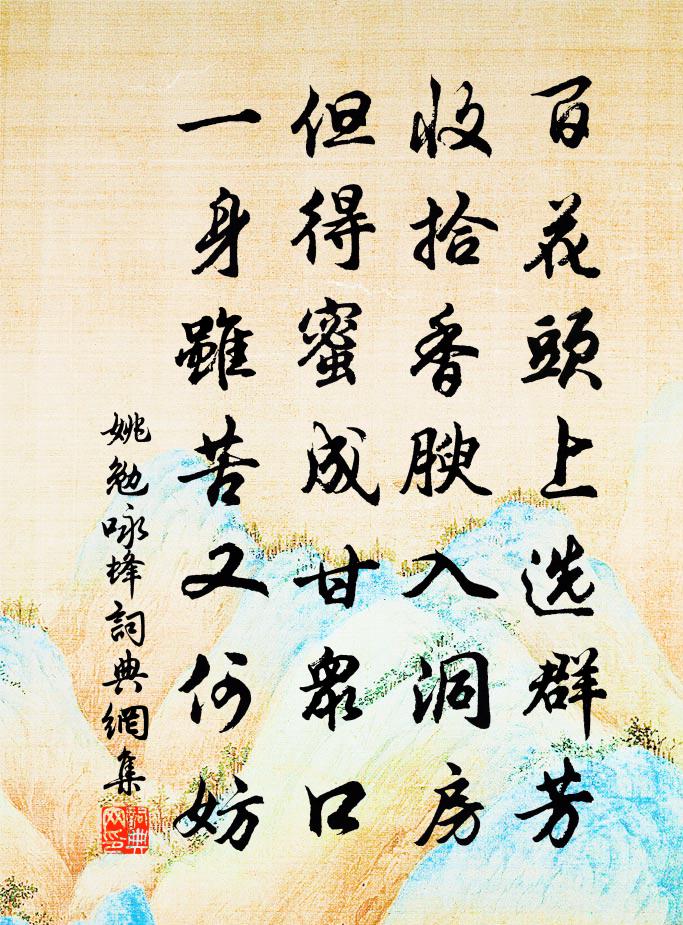 百花頭上选群芳
收拾香腴入洞房
但得蜜成甘眾口
一身雖苦又何妨
姚勉咏蜂詞典網集
詞典网印